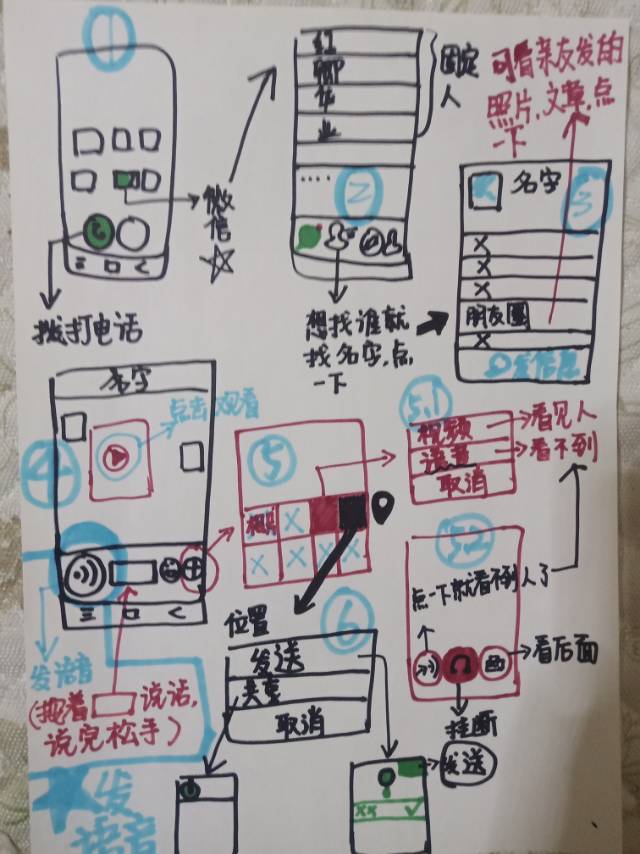 1
微信
拨打电话
红
卿
华
业
固定
人
2
想找谁就
找名字,点
一下
可看亲友发的
照片,文章,点
一下
名字
3
X
X
X
朋友圈
X
发信息
名字
点击观看
4
发语音
(按着 说话,
说完松手)
发
语音
5
相册
X
X X X X
5.1
视频
语音
取消
看见人
看不到
5.2
点一下就看不到人了
看后面
挂断
位置
6
发送
共享
取消
发送
XX